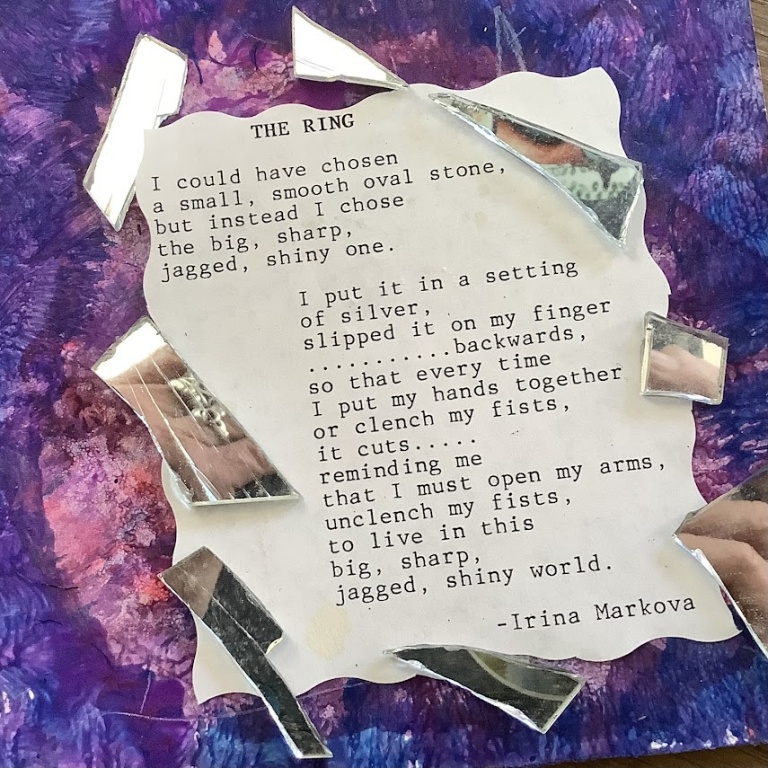 THE RING
I could have chosen
a small, smooth oval stone,
but instead I chose
the big, sharp,
jagged, shiny one.
I put it in a setting
of silver,
slipped it on my finger
...........backwards,
so that every time
I put my hands together
or clench my fists,
it cuts.....
reminding me
that I must open my arms,
unclench my fists,
to live in this
big, sharp,
jagged, shiny world.
-Irina Markova